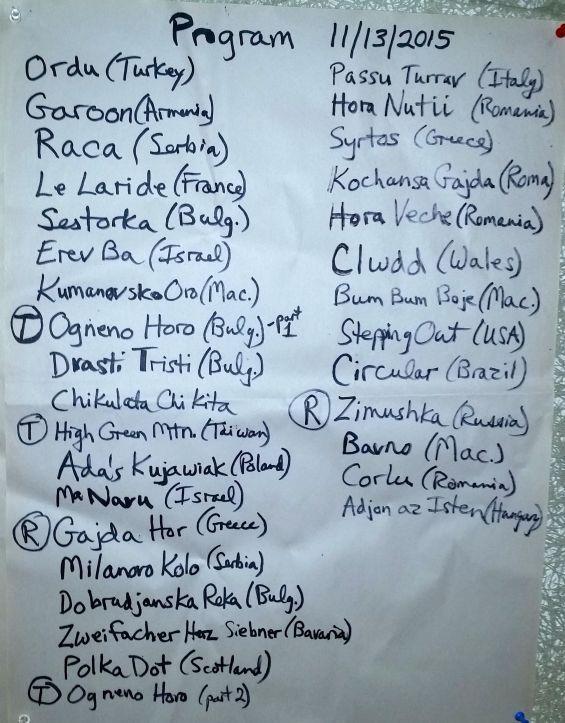 Program 11/13/2015
Ordu (Turkey)
Garoon (Armenia)
Raca (Serbia)
Le Laride (France)
Sestorka (Bulg.)
Erev Ba (Israel)
Kumanovsko Oro (Mac.)
T Ogneno Horo (Bulg.) - part 1
Drasti Tristi (Bulg.)
Chikulata Chikita
T High Green Mtn. (Taiwan)
Ada's Kujawiak (Poland)
Ma Navu (Israel)
R Gajda Hor (Greece)
Milanovo Kolo (Serbia)
Dobrudjanska Reka (Bulg.)
Zweifacher Haz Siebner (Bavaria)
Polka Dot (Scotland)
T Ogneno Horo (part 2)
Passu Turrav (Italy)
Hora Nutii (Romania)
Syrtos (Greece)
Kochansa Gajda (Roma)
Hora Veche (Romania)
Clwdd (Wales)
Bum Bum Boje (Mac.)
Stepping Out (USA)
Circular (Brazil)
R Zimushka (Russia)
Bavno (Mac.)
Corlu (Romania)
Adjon az Isten (Hungary)